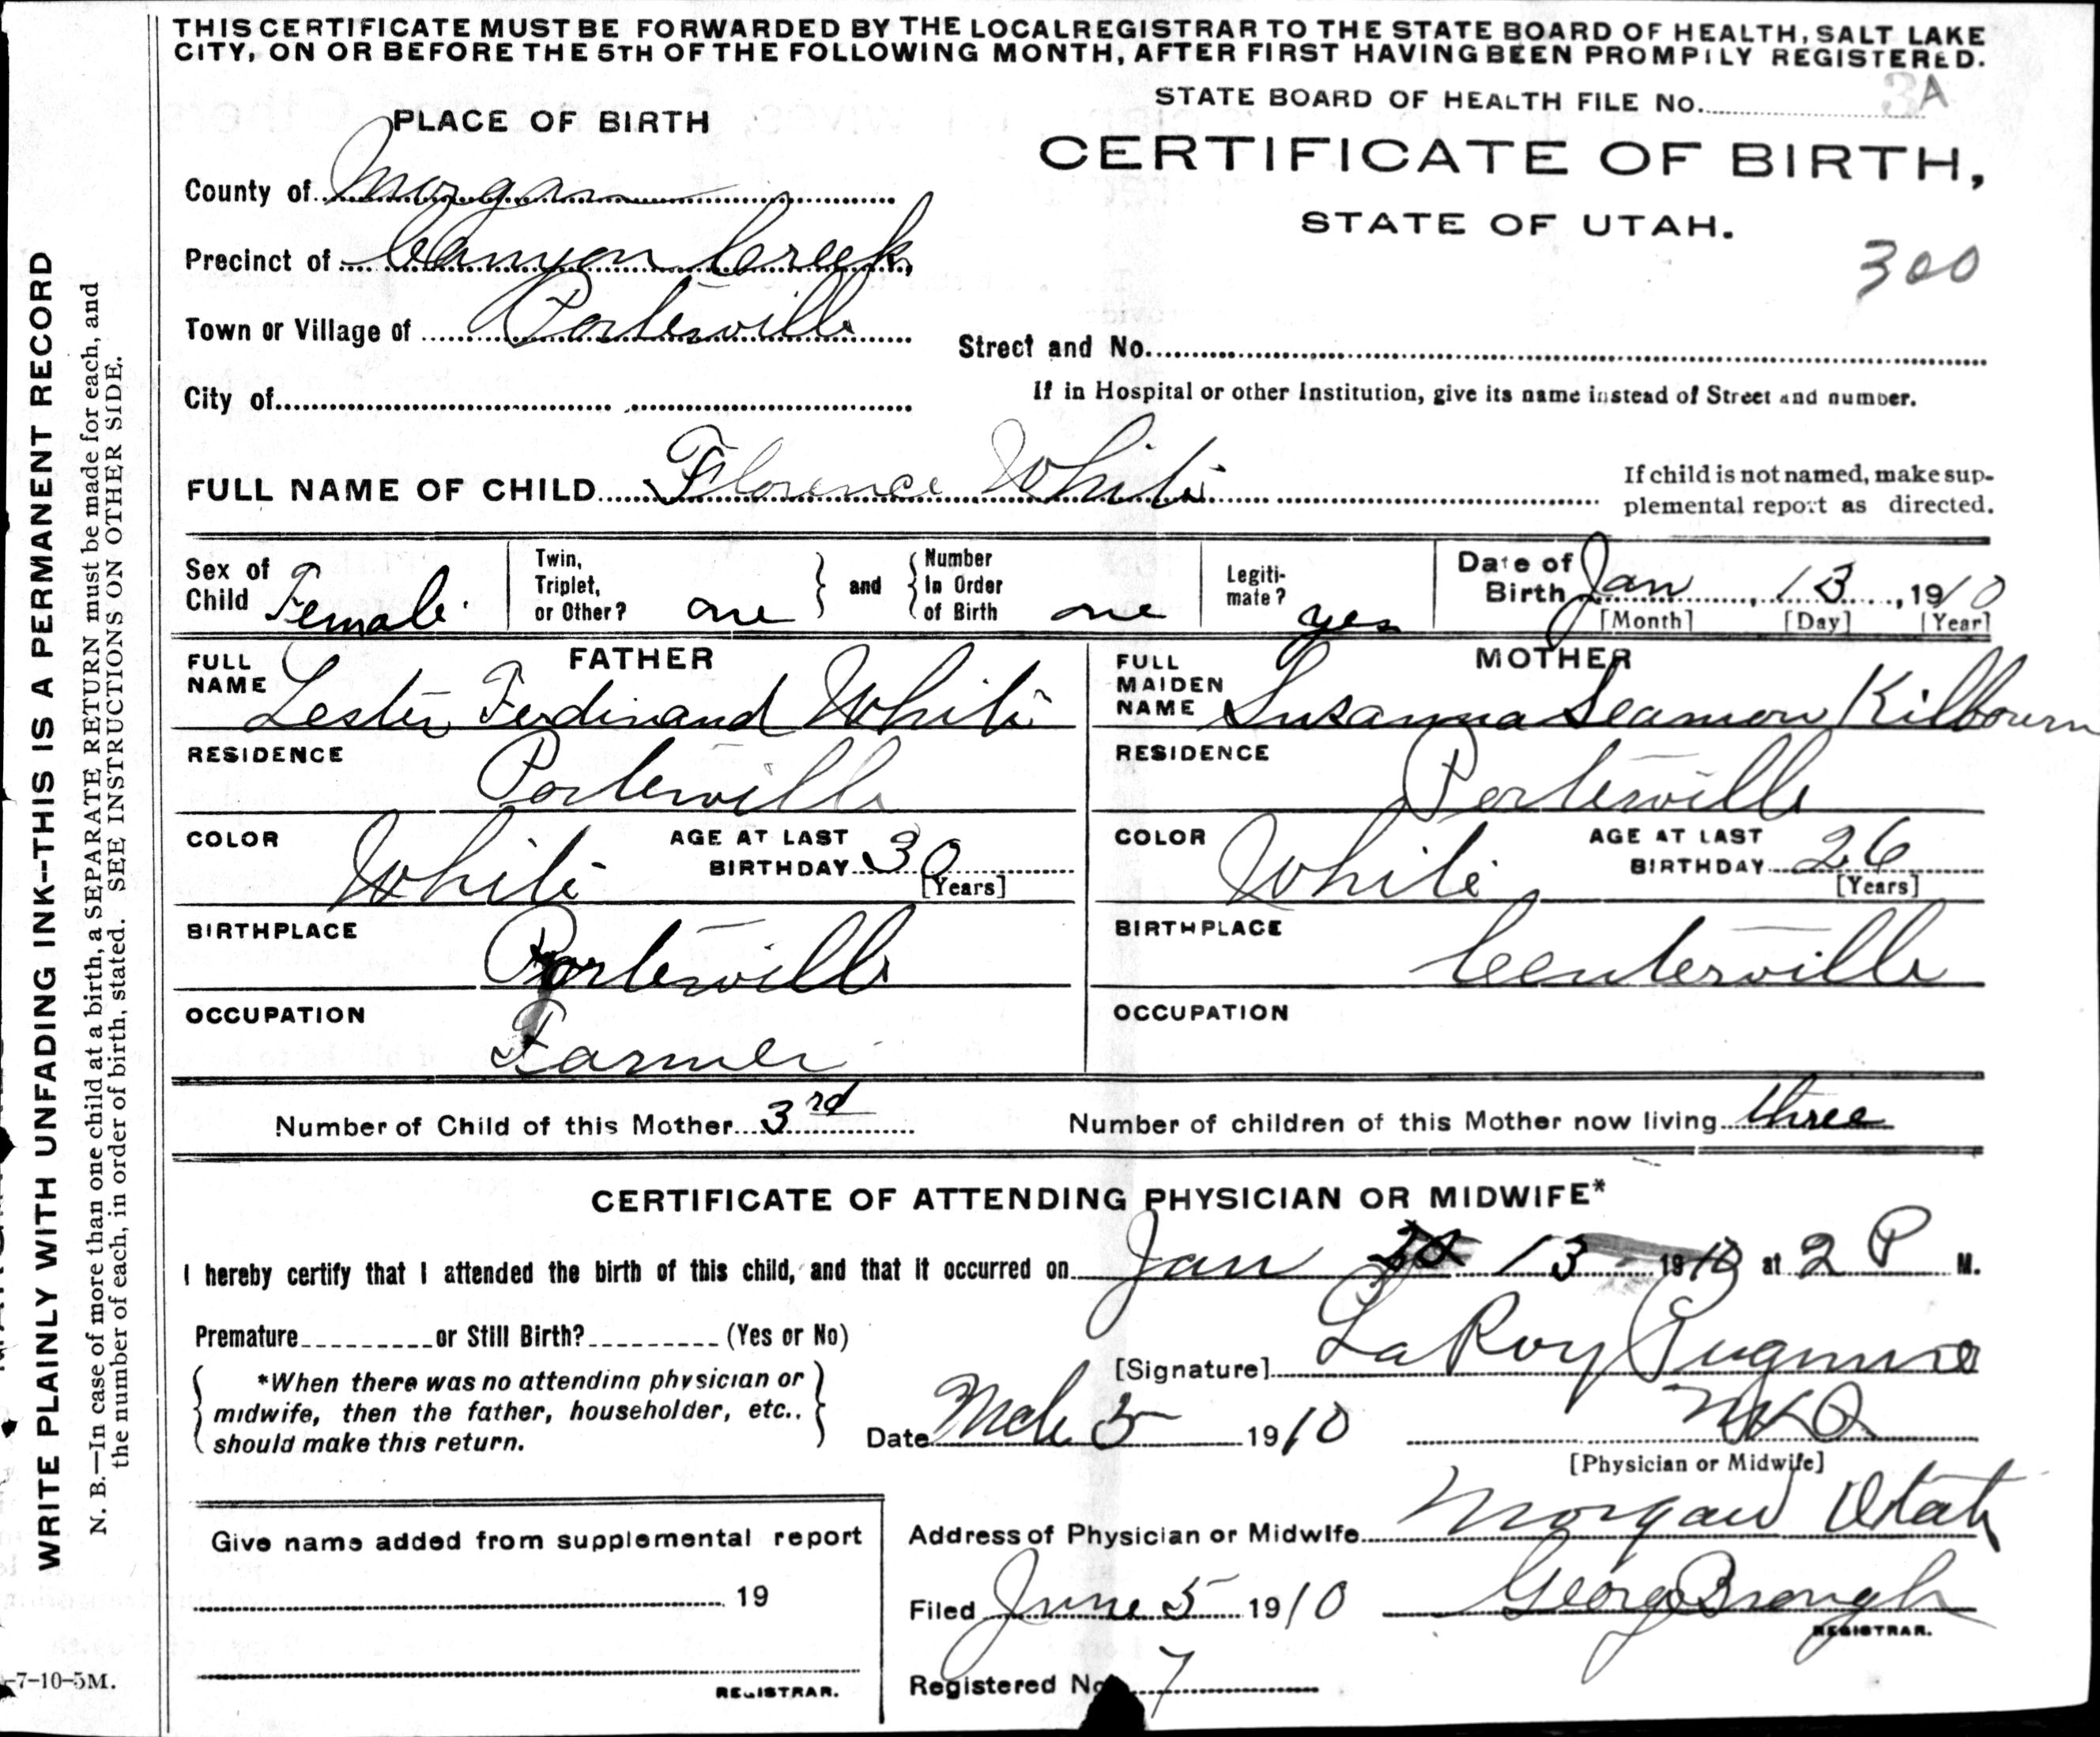 THIS CERTIFICATE MUST BE FORWARDED BY THE LOCAL REGISTRAR TO THE STATE BOARD OF HEALTH, SALT LAKE
CITY, ON OR BEFORE THE 5TH OF THE FOLLOWING MONTH, AFTER FIRST HAVING BEEN PROMPILY REGISTERED.
STATE BOARD OF HEALTH FILE No. 3A
PLACE OF BIRTH
CERTIFICATE OF BIRTH,
STATE OF UTAH.
300
County of Morgan
Precinct of Canyon Creek
Town or Village of Porterville
Street and No.
City of
If in Hospital or other Institution, give its name instead of Street and number.
FULL NAME OF CHILD Florence White
If child is not named, make sup-
plemental report as directed.
Sex of Child Female
Twin, Triplet, or Other? one
and
Number In Order of Birth one
Legiti-
mate? yes
Date of Birth Jan 13, 1910
[Month] [Day] [Year]
FATHER
FULL NAME Lester Ferdinand White
RESIDENCE Porterville
COLOR White
AGE AT LAST BIRTHDAY 30
[Years]
BIRTHPLACE Porterville
OCCUPATION Farmer
MOTHER
FULL MAIDEN NAME Susanna Seamon Kilbourn
RESIDENCE Porterville
COLOR White
AGE AT LAST BIRTHDAY 26
[Years]
BIRTHPLACE Centerville
OCCUPATION
Number of Child of this Mother 3rd
Number of children of this Mother now living three
CERTIFICATE OF ATTENDING PHYSICIAN OR MIDWIFE*
I hereby certify that I attended the birth of this child, and that it occurred on Jan 13 1910 at 2 P M.
Premature or Still Birth? (Yes or No)
[Signature] LaRoy Pugmire
*When there was no attending physician or
midwife, then the father, householder, etc.,
should make this return.
Date Mch 5 1910
MD
[Physician or Midwife]
Address of Physician or Midwife Morgan Utah
Give name added from supplemental report
19
REGISTRAR.
Filed June 5 1910
George Brough
REGISTRAR.
Registered No 7
WRITE PLAINLY WITH UNFADING INK--THIS IS A PERMANENT RECORD
N. B.—In case of more than one child at a birth, a SEPARATE RETURN must be made for each, and
the number of each, in order of birth, stated. SEE INSTRUCTIONS ON OTHER SIDE.
-7-10-5M.